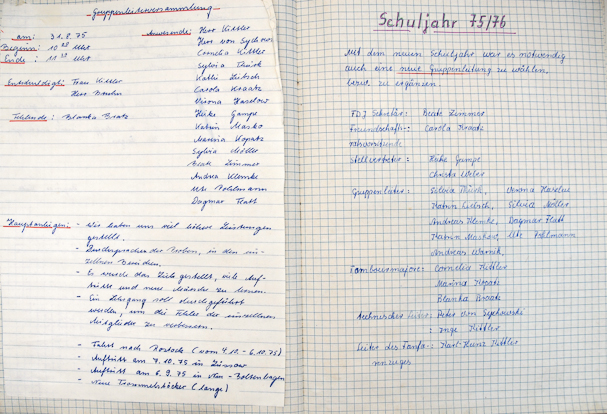 Gruppenleiterversammlung
am: 31.8.75
Beginn: 10 00 Uhr
Ende: 11 30 Uhr
Anwesende: Herr Kittler
Herr von Sychowski
Cornelia Kittler
Sylvia Thürk
Kathi
Carola Kraatz
Verona Haselow
Heike Gampe
Katrin Masko
Marina Kopatz
Sylvia Möller
Beate Zimmer
Andrea Klemke
Ute Pohlmann
Dagmar
Entschuldigt: Frau Kittler
Herr
Fehlende: Blanka
Hauptanliegen: - Wir haben uns viel höhere Leistungen
gestellt.
- der Proben, in den ein-
zelnen Bereichen.
- Es wurde das Ziele gestellt, viele Auf-
tritte und neue zu lernen.
- Ein Lehrgang soll durchgeführt
werden, um die Fehler der einzelnen
Mitglieder zu verbessern.
- Fahrt nach Rostock (vom 4.10. - 6.10.75)
- Auftritt am 7.10.75 in Züssow
- Auftritt am 6.9.75 in Boltenhagen
- Neue Trommelstöcker (lange)
Schuljahr 75/76
Mit dem neuen Schuljahr war es notwendig
auch eine neue Gruppenleitung zu wählen,
bezw. zu ergänzen.
FDJ Sekretär: Beate Zimmer
Freundschafts-: Carola Kraatz
ratsvorsitzende
Stellvertreter: Heike Gampe
Christa Weber
Gruppenleiter: Silvia Thürk, Verona Haselow
Katrin Silvia Möller
Andreas Klemke, Dagmar
Katrin Maskow, Ute Pohlmann
Andreas Warnik,
Tambourmajore: Cornelia Kittler
Marina Kopatz
Blanka
Technischer Leiter: Peter von Sychowski
: Inge Kittler
Leiter des Fanfa-: Karl-Heinz Kittler
renzuges